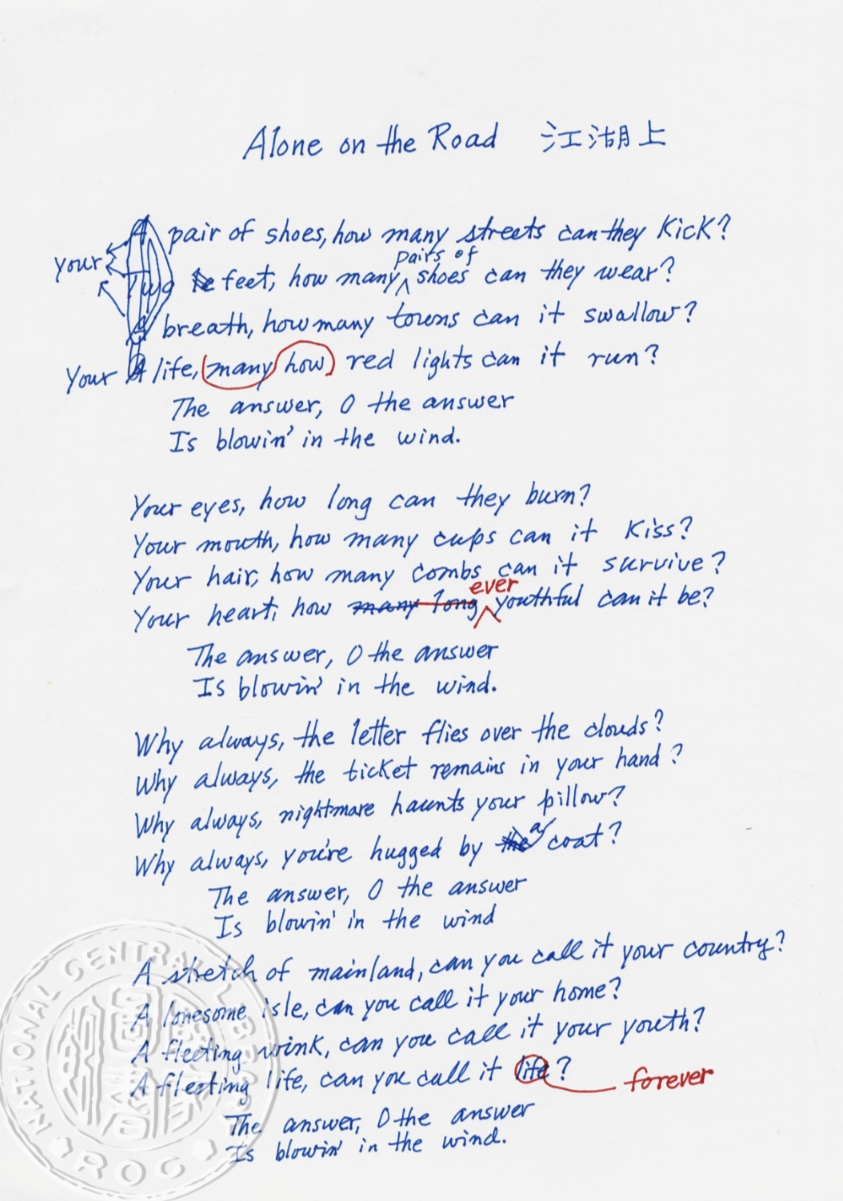 Alone on the Road 江湖上
A pair of shoes, how many streets can they kick?
your
pairs of
Two feet, how many shoes can they wear?
A breath, how many towns can it swallow?
Your A life, many how red lights can it run?
The answer, O the answer
Is blowin' in the wind.
Your eyes, how long can they burn?
Your mouth, how many cups can it kiss?
Your hair, how many combs can it survive?
ever
Your heart, how many long youthful can it be?
The answer, O the answer
Is blowin' in the wind.
Why always, the letter flies over the clouds?
Why always, the ticket remains in your hand?
Why always, nightmare haunts your pillow?
Why always, you're hugged by the a coat?
The answer, O the answer
Is blowin' in the wind
A stretch of mainland, can you call it your country?
A lonesome isle, can you call it your home?
A fleeting wink, can you call it your youth?
A fleeting life, can you call it life?
forever
The answer, O the answer
Is blowin' in the wind.
NATIONAL CENTRAL LIBRARY
ROC